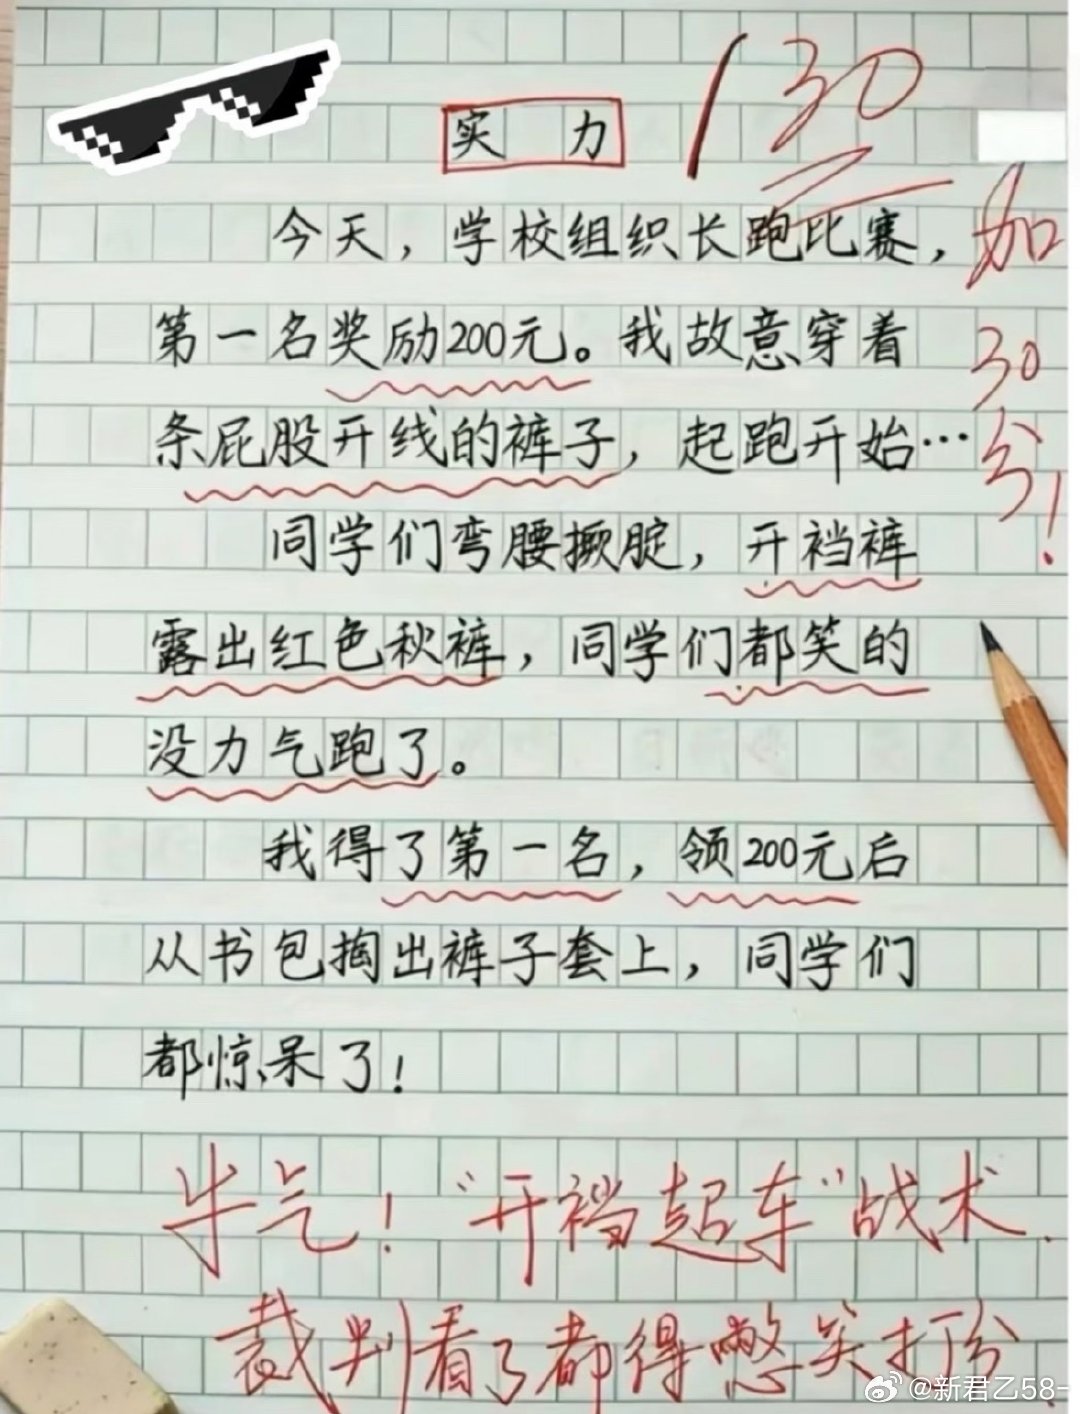 实力
130
今天，学校组织长跑比赛，
加
第一名奖励200元。我故意穿着
30
条屁股开线的裤子，起跑开始…
分！
同学们弯腰撅腚，开裆裤
露出红色秋裤，同学们都笑的
没力气跑了。
我得了第一名，领200元后
从书包掏出裤子套上，同学们
都惊呆了！
牛气！“开裆起车”战术.
裁判看了都得憋笑打分
@新君乙58-